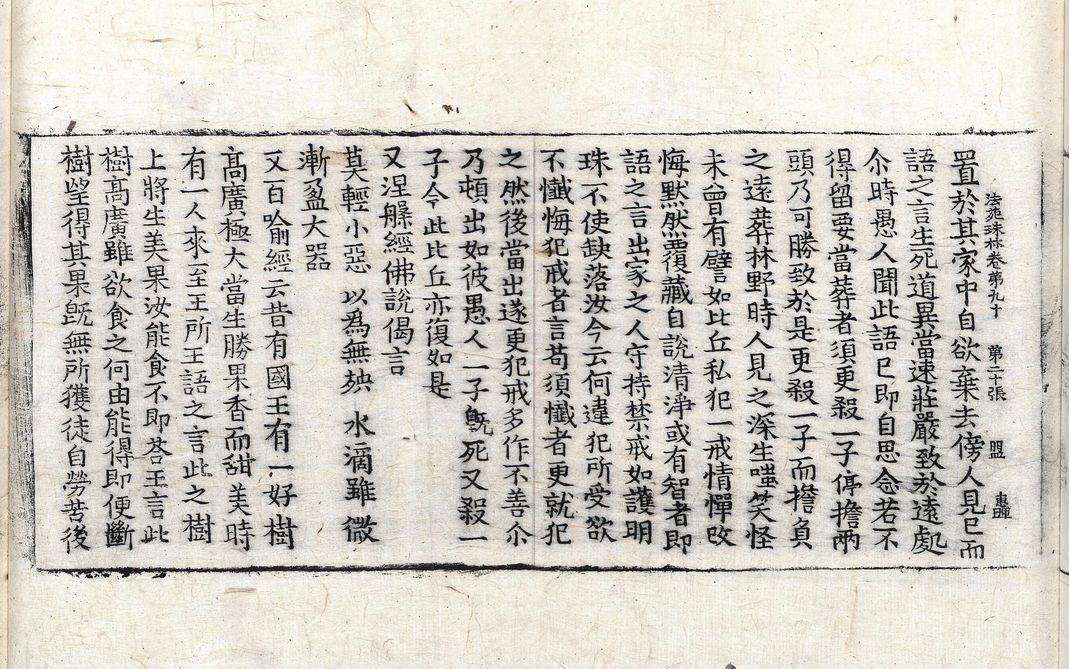 法苑珠林卷第九十 第二十張 盟
置於其家中自欲棄去傍人見已而
語之言生死道異當速莊嚴致於遠處
尒時愚人聞此語已即自思念若不
得留要當葬者須更殺一子停擔兩
頭乃可勝致於是更殺一子而擔負
之遠葬林野時人見之深生嗤笑怪
未曾有譬如比丘私犯一戒情憚改
悔默然覆藏自說清淨或有智者即
語之言出家之人守持禁戒如護明
珠不使缺落汝今云何違犯所受欲
不懺悔犯戒者言苟須懺者更就犯
之然後當出遂更犯戒多作不善尒
乃頓出如彼愚人一子旣死又殺一
子今此比丘亦復如是
又涅槃經佛說偈言
莫輕小惡 以為無殃 水滴雖微
漸盈大器
又百喻經云昔有國王有一好樹
高廣極大當生勝果香而甜美時
有一人來至王所王語之言此之樹
上將生美果汝能食不即荅王言此
樹高廣雖欲食之何由能得即便斷
樹望得其果旣無所獲徒自勞苦後